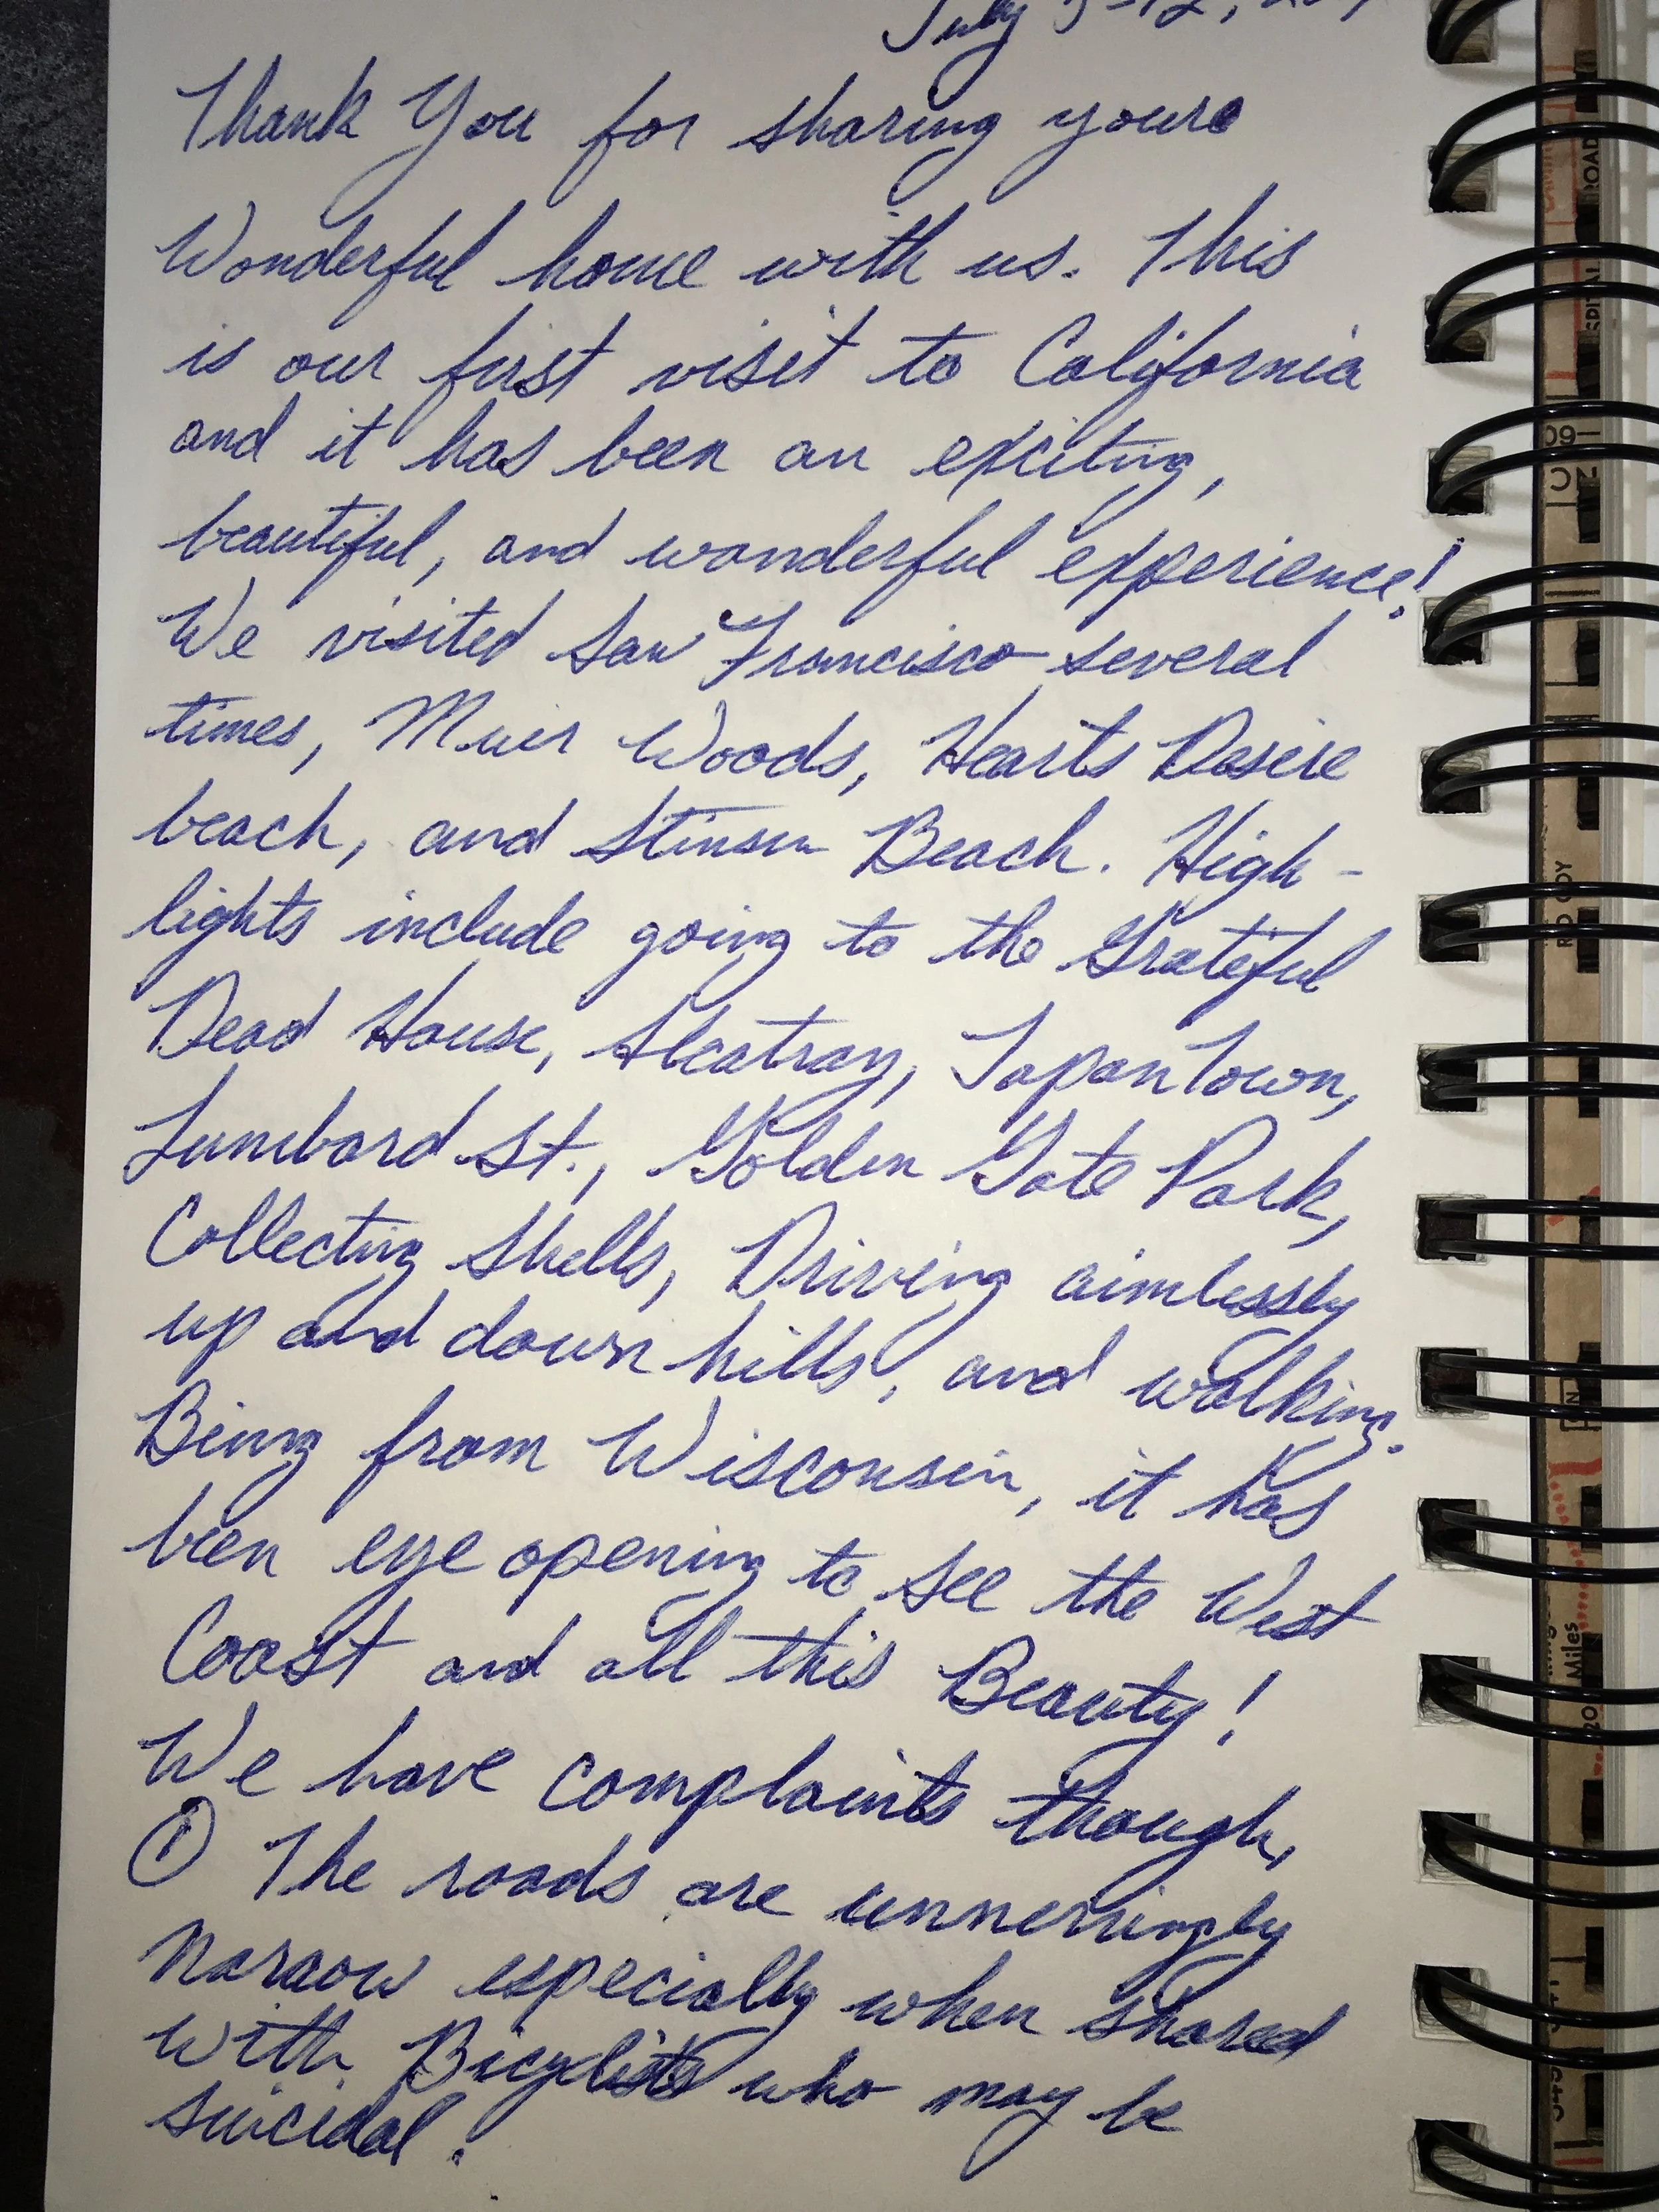 July 5-12,
Thank You for sharing youre
Wonderful home with us. This
is our first visit to California
and it has been an exciting,
beautiful, and wonderful experience!
We visited San Francisco several
times, Muir Woods, Hearts Desire
beach, and Stinson Beach. High-
lights include going to the Grateful
Dead House, Alcatraz, JapanTown,
Lumbard St., Golden Gate Park,
Collecting Shells, Driving aimlessly
up and down hills, and walking.
Being from Wisconsin, it has
been eye opening to see the West
Coast and all this Beauty!
We have complaints though,
① The roads are unnervingly
narrow especially when shared
with Bicyclists who may be
suicidal.
ROAD
SPITAL
60
2C
RED
Miles
20